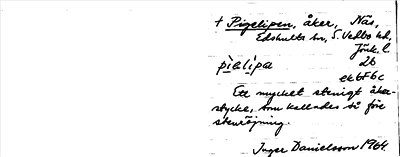 + Pigelipen, åker, Näs,
Edshults sn, S. Vedbo hd,
Jönk. l.
pìelìpa 2b
ek6F6c
Ett mycket stenigt åker-
stycke, som kallades så före
stenröjning.
Inger Danielsson 1964.